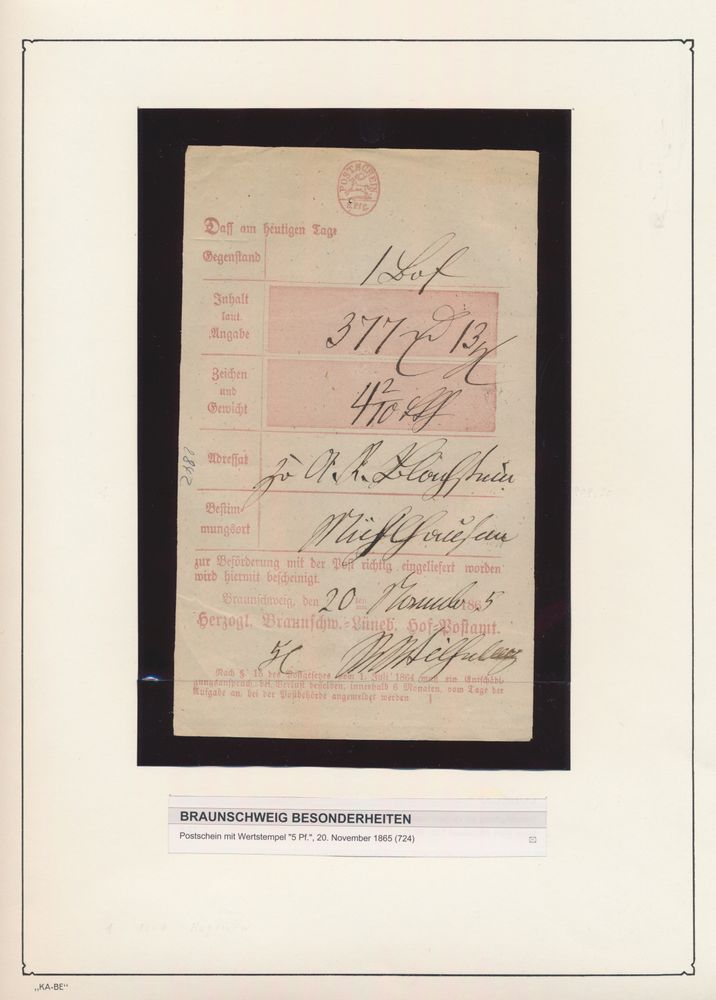 POSTSCHEIN
5 PFG.
Daß am heutigen Tage
Gegenstand
Inhalt
laut
Angabe
377 13
Zeichen
und
Gewicht
4 2/10
Adressat
Bestim
mungsort
zur Beförderung mit der Post richtig eingeliefert worden
wird hiermit bescheinigt.
Braunschweig, den 20 ten November 1865
Herzogl. Braunschw.-Lüneb. Hof-Postamt.
Nach § 15 des Postgesetzes vom 1. Juli 1864 muß ein Entschädi-
gungsanspruch bei Verlust desselben, innerhalb 6 Monaten, vom Tage der
Aufgabe an, bei der Postbehörde angemeldet werden
BRAUNSCHWEIG BESONDERHEITEN
Postschein mit Wertstempel "5 Pf.", 20. November 1865 (724)
„KA-BE"